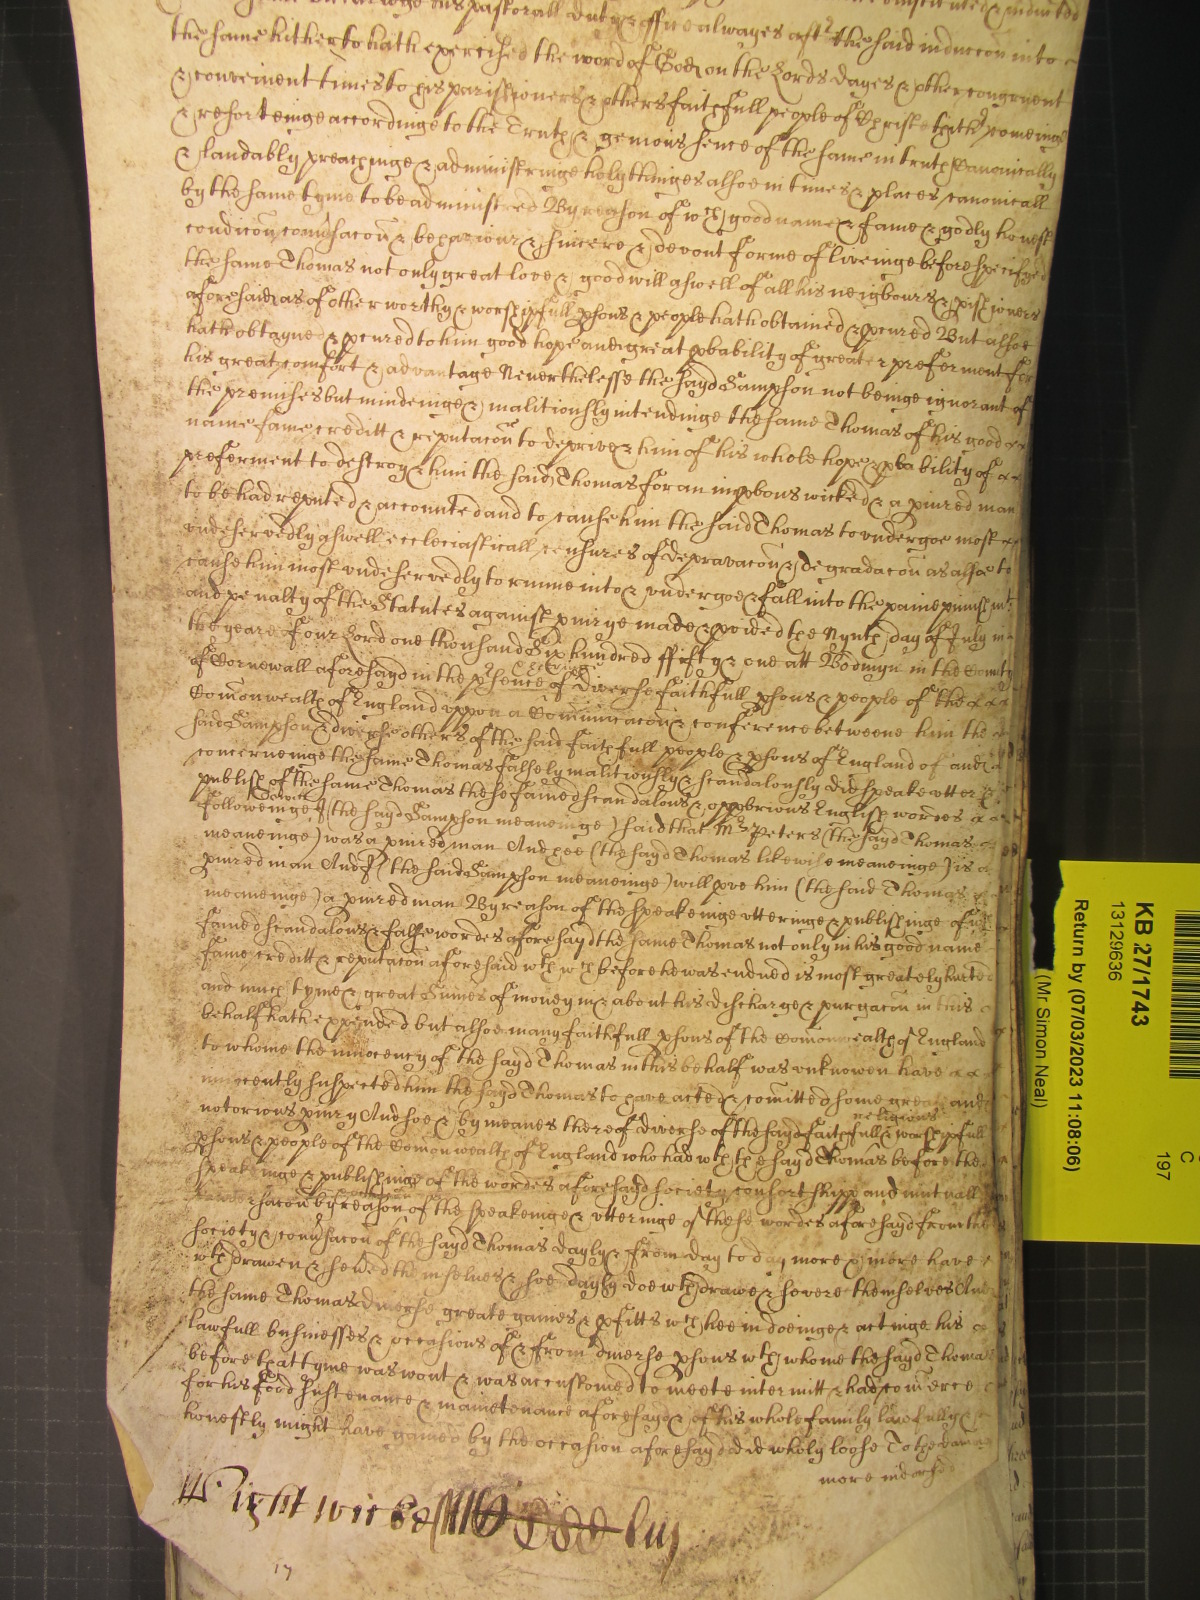 his pastorall duty & office alwayes aft the said induccon into
the same hitherto hath exercised the word of God on the Lords dayes & other congruent
& convenient times to his parissioners & others faithfull people of Christ thither comeinge
& resorteinge accordinge to the Truth & gemious sence of the same in truth Canonically
& laudably preachinge & administringe holy thinges alsoe in times & places canonicall
by the same tyme to be administred By reason of wch good name & fame & godly honest
condicon convsacon & behaviour & sincere & devout forme of liveinge before specifyed
the same Thomas not only great love & good will aswell of all his neigbours & pishioners
aforesaid as of other worthy & worshipfull psons & people hath obtained & pcured But alsoe
hath obtayned & pcured to him good hope and great pbability of greater preferment for
his great comfort & advantage Neverthelesse the sayd Sampson not beinge ignorant of
the premises but mindeinge & malitiously intendinge the same Thomas of his good
name fame creditt & reputacon to deprive & him of his whole hope & pbability of
preferment to destroy & him the said Thomas for an inpbous wicked & a piured man
to be had reputed & accounted and to cause him the said Thomas to undergoe most
undeservedly aswell ecclesiasticall censures of depravacon & degradacon as alsoe to
cause him most undeservedly to runne into & undergoe & fall into the paine punishmt
and penalty of the Statutes against piury made & pvided the Nynth day of July in
the yeare of our Lord one thousand Six hundred fifty & one att Bodmyn in the County
of Cornewall aforesayd in the psence of diverse faithfull psons & people of the
Comonwealth of England uppon a Comunicacon & conference betweene him the
said Sampson & diverse others of the said faithfull people & psons of England of and
concerneinge the same Thomas falsely malitiously & scandalously did speake utter &
publish of the same Thomas these fained scandalous & opprobrious English wordes
followeinge I (the sayd Sampson meaneinge) said that Mr Peters (the sayd Thomas
meaneinge) was a piured man And hee (the sayd Thomas likewise meaneinge) is a
piured man And I (the said Sampson meaneinge) will pve him (the said Thomas
meaneinge) a piured man By reason of the speakeinge utteringe & publishinge of
fained scandalous & false wordes aforesayd the same Thomas not only in his good name
fame creditt & reputacon aforesaid wth wch before he was endued is most greately hurted
and much tyme & great Sumes of money in & about his discharge & purgacon in this
behalf hath expended but alsoe many faithfull psons of the Comonwealth of England
to whome the innocency of the sayd Thomas in this behalf was unknowen have
innocently suspected him the sayd Thomas to have acted & comitted some great and
notorious piury And soe & by meanes thereof diverse of the sayd faithfull religious & worshipfull
psons & people of the Comonwealth of England who had wth the sayd Thomas before the
speakeinge & publishinge of the wordes aforesayd society consortshipp and mutuall
convsacon by reason of the speakeinge & utteringe of these wordes aforesayd from the
society & convsacon of the sayd Thomas dayly & from day to day more & more have
wthdrawen & severed themselves & soe dayly doe wthdrawe & severe themselves And
the same Thomas diverse greate gaines & pfitts wch hee in doeinge & actinge his
lawfull businesses & occasions of & from diverse psons wth whome the sayd Thomas
before that tyme was wont & was accustomed to meete intermitt & had comerce
for his food sustenance & maintenance aforesayd & of his whole family lawfully &
honestly might have gained by the occasion aforesayd did wholy loose To the damage
more indorsed
17
KB 27/1743
13129636
Return by (07/03/2023 11:08:06)
(Mr Simon Neal)
C
197